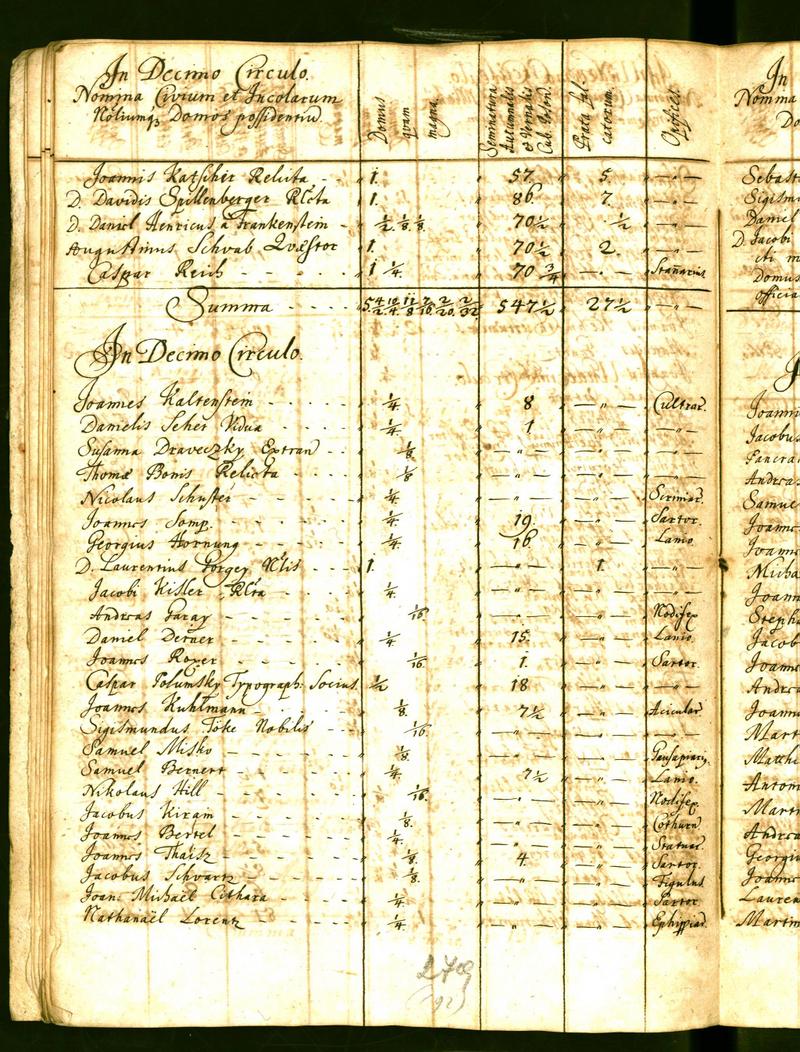 In Decimo Circulo.
Nomina Civium et Incolarum
Nõliumq; Domos possidentiũ.
Domus quam magna
Seminatura Autumnalis & Vernalis Cub.
Prata Falcatorum.
Opifices
Joannis Katschir Relicta - - 1. 57. 5. — " —
D. Davidis Spillenberger Rlĉta 1. 86. 7. — " —
D. Daniel Henricus a Frankenstein - 1/2. 1/8. 1/8. 70 1/2 1/2 — " —
Augustinus Schvab Quæstor 1. 70 1/2 2. — " —
Caspar Reich - - - - - 1 1/4. 70 3/4 — " — Stañarius
Summa - - - - 547 1/2 27 1/2 — " —
In Decimo Circulo.
Joannes Kaltenstein - - - - 1/4. 8 — " — Cultrar.
Danielis Seher Vidua - - - 1/4. 1 — " — — " —
Susanna Draveczky Extran - - - 1/8 — " — — " — — " —
Thomæ Bonis Relicta - - - - 1/8 — " — — " — — " —
Nicolaus Schuster - - - - 1/4. — " — — " — Scriniar.
Joannes Somp. - - - - 1/4. 19. — " — Sartor.
Georgius Hornung - - - - 1/4. 16. — " — Lanio.
D. Laurentius Görgey Nĉlis - - 1. — " — 1. — " —
Jacobi Kisler Rlĉta - - - 1/4. — " — — " — — " —
Andreas Garay - - - - 1/16. — " — — " — Nodifex
Daniel Derner - - - - 1/4. 15. — " — Lanio.
Joannes Roxer - - - - 1/16. 1. — " — Sartor.
Caspar Polumsky Typograph. Socius 1/2 18 — " — — " —
Joannes Kuhlmann - - - - 1/8. 7 1/2 — " — Acicular.
Sigismundus Töke Nobilis - - - 1/16. — " — — " — — " —
Samuel Misko - - - - 1/8. — " — — " — Gausapiari9
Samuel Bernert - - - - 1/4. 7 1/2 — " — Lanio.
Nikolaus Hill - - - - 1/16. — " — — " — Nodifex
Jacobus Kiram - - - - 1/8. — " — — " — Cothurn.
Joannes Bertel - - - - 1/4. — " — — " — Statuar.
Joannes Thaisz - - - - 1/8. 4. — " — Sartor.
Jacobus Schvartz - - - - 1/8. — " — — " — Figulus
Joan. Michaël Cithara - - - 1/4. — " — — " — Sartor
Nathanaël Lorentz - - - - 1/4. — " — — " — Ephippiar.
In
Nomina
Do
Sebast
Sigism
Daniel
D. Jacobi
Domus
Officia
Joannis
Jacobus
Pancra
Andreas
Samuel
Joannes
Joannes
Micha
Joann
Steph
Jacob
Joannes
Andrea
Joannes
Mart
Matthi
Anton
Martin
Andrea
Georgi
Joannes
Lauren
Martin